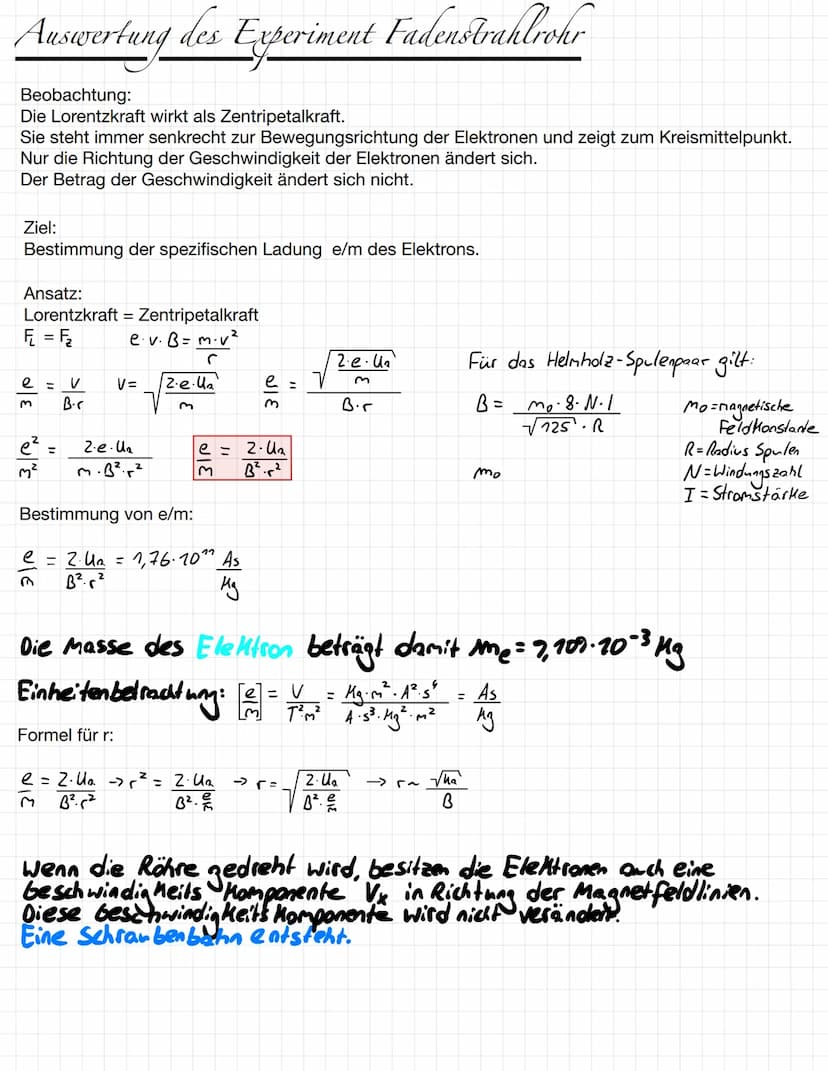 Auswertung des Experiment Fadenstrahlrohr
Beobachtung:
Die Lorentzkraft wirkt als Zentripetalkraft.
Sie steht immer senkrecht zur Bewegungsrichtung der Elektronen und zeigt zum Kreismittelpunkt.
Nur die Richtung der Geschwindigkeit der Elektronen ändert sich.
Der Betrag der Geschwindigkeit ändert sich nicht.
Ziel:
Bestimmung der spezifischen Ladung e/m des Elektrons.
Ansatz:
Lorentzkraft = Zentripetalkraft
F_L = F_z   e·v·B = m·v²/r
e/m = v/(B·r)   v = √(2·e·Ua/m)   e/m = √(2·e·Ua/m)/(B·r)
e²/m² = 2·e·Ua/(m·B²·r²)   e/m = 2·Ua/(B²·r²)
Für das Helmholz-Spulenpaar gilt:
B = m₀·8·N·I/(√125·R)
m₀
m₀ = magnetische
Feldkonstante
R = Radius Spulen
N = Windungszahl
I = Stromstärke
Bestimmung von e/m:
e/m = 2·Ua/(B²·r²) = 1,76·10¹¹ As/kg
Die Masse des Elektron beträgt damit me = 9,109·10⁻³ kg
Einheitenbetrachtung: [e/m] = V/(T²·m²) = kg·m²·A²·s⁴/(A·s³·kg²·m²) = As/kg
Formel für r:
e/m = 2·Ua/(B²·r²) → r² = 2·Ua/(B²·e/m) → r = √(2·Ua/(B²·e/m)) → r ~ √Ua/B
Wenn die Röhre gedreht wird, besitzen die Elektronen auch eine
Geschwindigkeits Komponente Vx in Richtung der Magnetfeldlinien.
Diese Geschwindigkeits Komponente wird nicht verändert.
Eine Schraubenbahn entsteht.